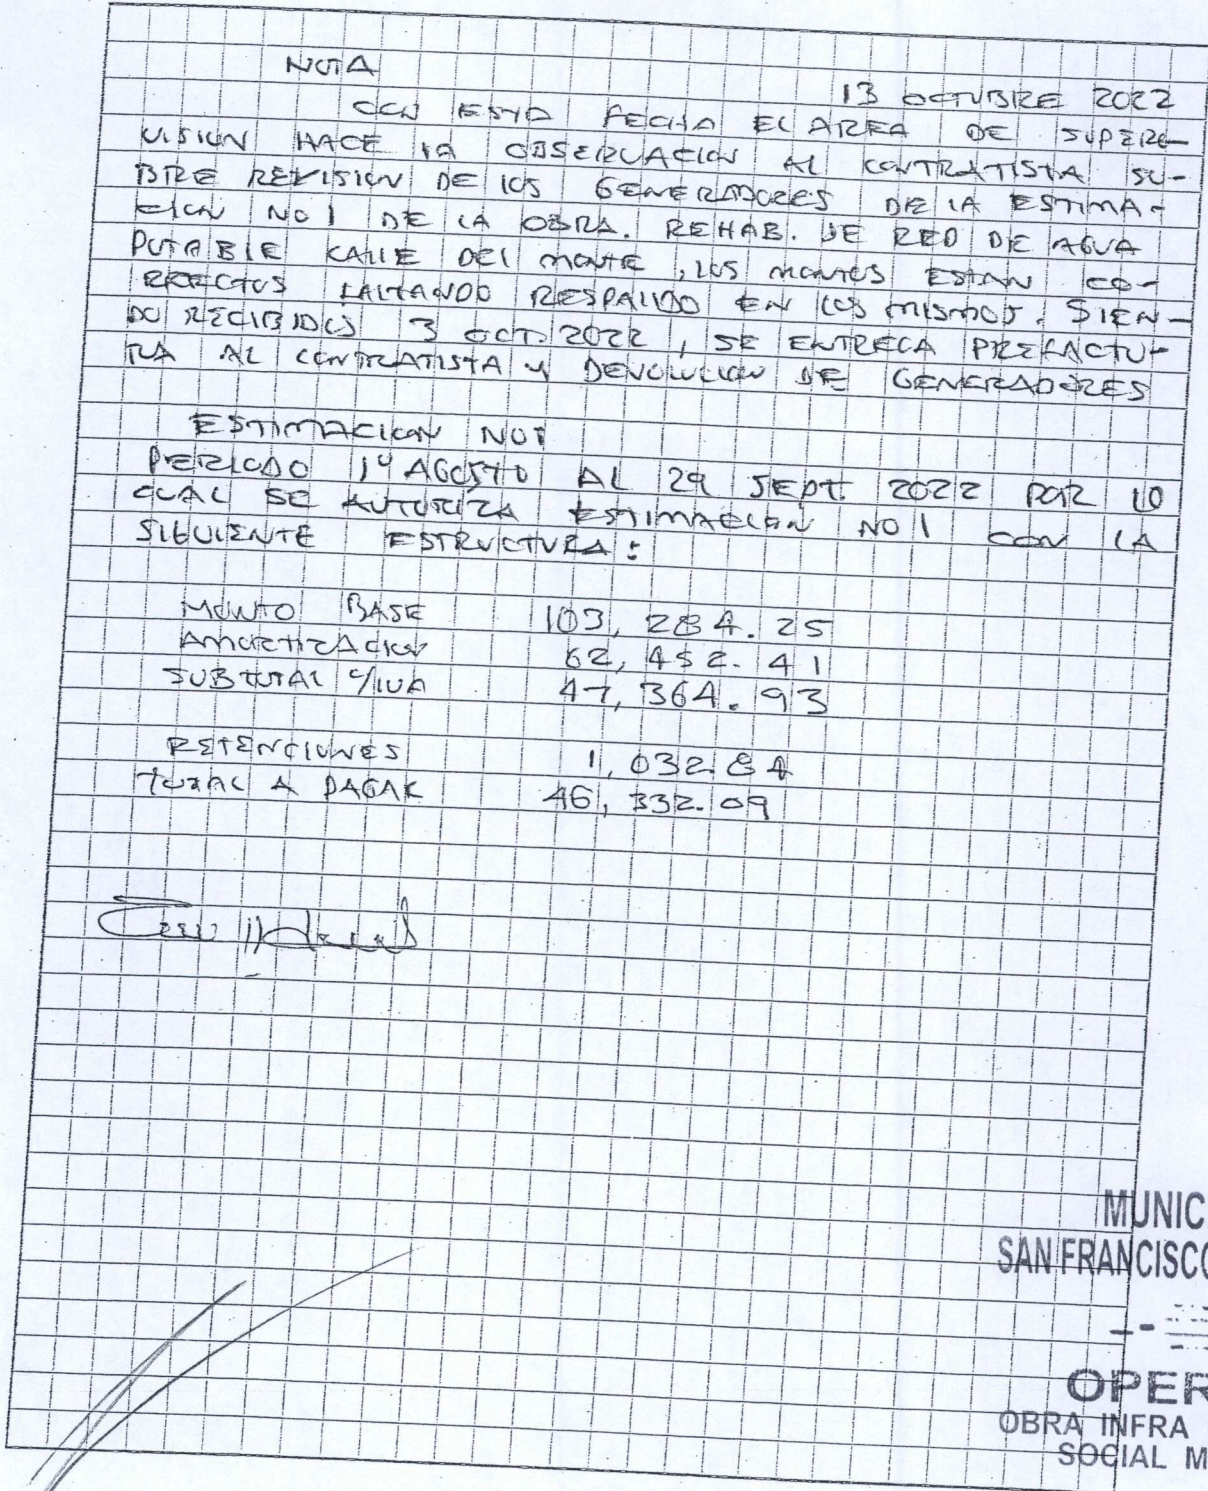 NOTA
13 OCTUBRE 2022
CON ESTA FECHA EL AREA DE SUPER-
VISION HACE LA OBSERVACION AL CONTRATISTA SO-
BRE REVISION DE LOS GENERADORES DE LA ESTIMA-
CION NO 1 DE LA OBRA. REHAB. DE RED DE AGUA
POTABLE CALLE DEL MONTE, LOS MONTOS ESTAN CO-
RRECTOS FALTANDO RESPALDO EN LOS MISMOS. SIEN-
DO RECIBIDOS 3 OCT. 2022, SE ENTREGA PREFACTU-
RA AL CONTRATISTA Y DEVOLUCION DE GENERADORES
ESTIMACION NO 1
PERIODO AGOSTO AL 29 SEPT 2022 POR LO
CUAL SE AUTORIZA ESTIMACION NO 1 CON LA
SIGUIENTE ESTRUCTURA:
MONTO BASE 103, 284. 25
AMORTIZACION 62, 452. 41
SUBTOTAL C/IVA 47, 364. 93
RETENCIONES 1, 032.84
TOTAL A PAGAR 46, 332.09
MUNIC
SAN FRANCISCO
OPER
OBRA INFRA
SOCIAL M